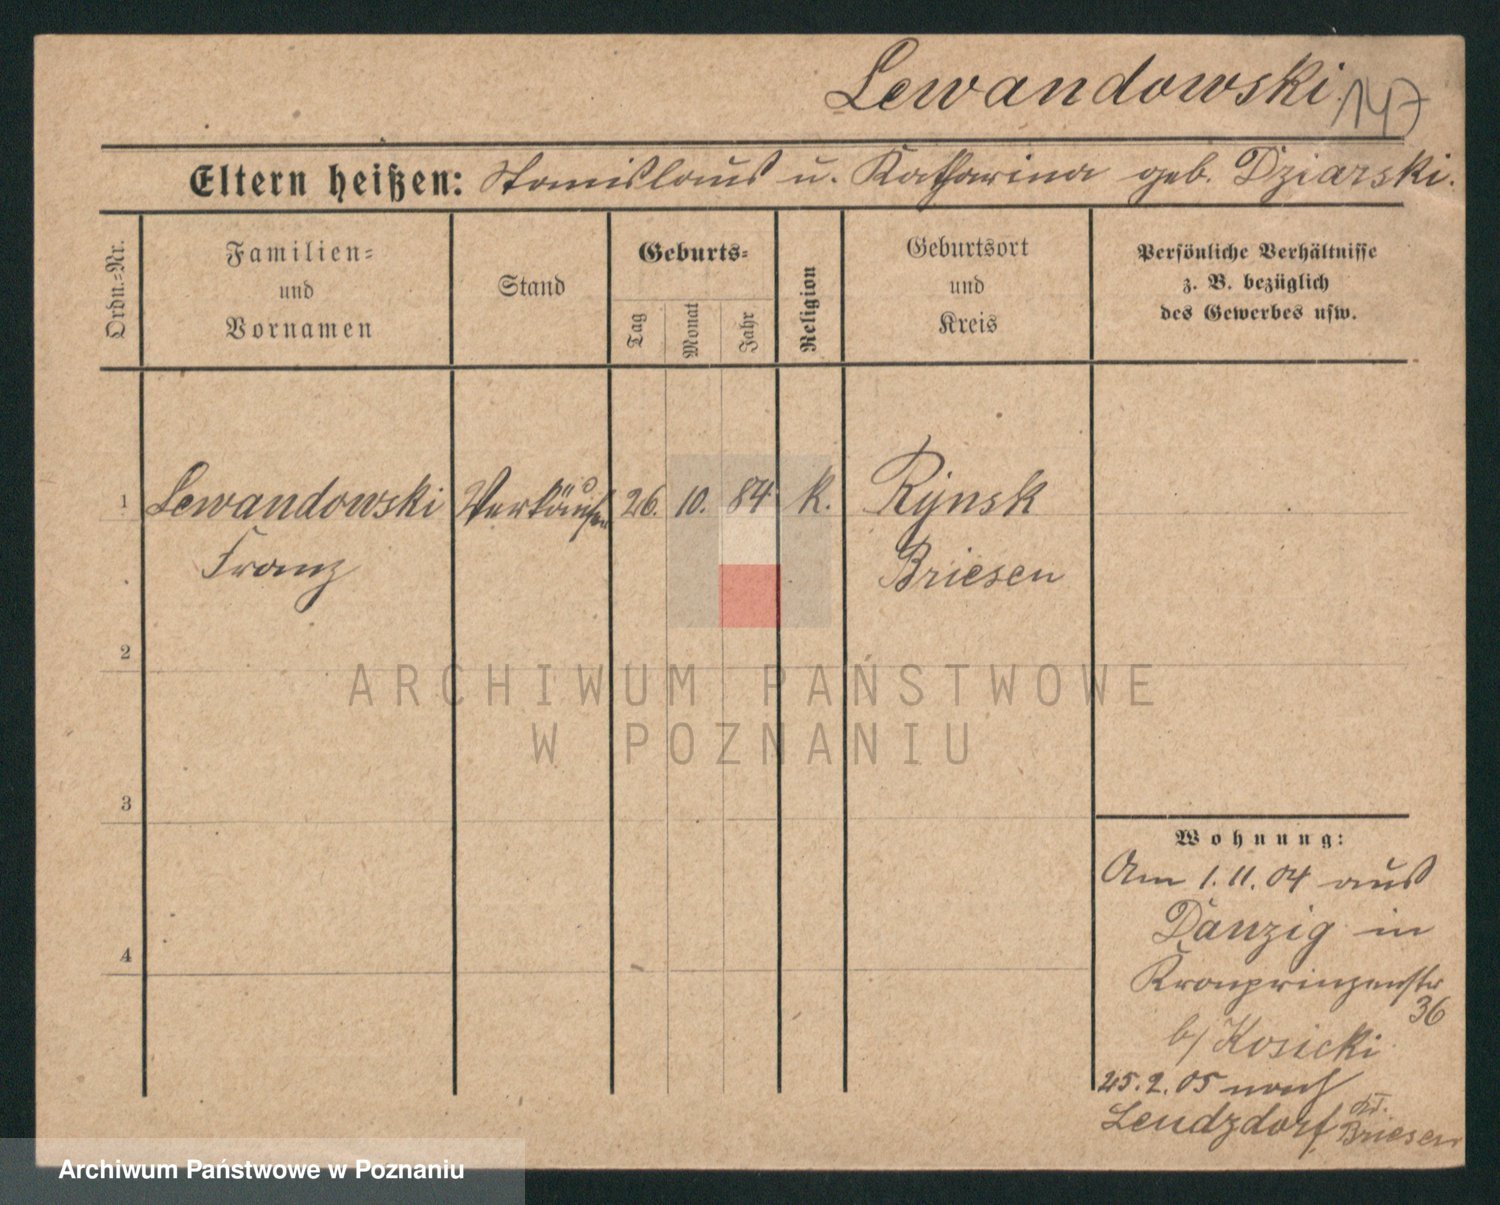 Lewandowski 147
Eltern heißen: Stanislaus u. Katharina geb. Dziarski.
Ordn.-Nr.
Familien-
und
Vornamen
Stand
Geburts-
Tag
Monat
Jahr
Religion
Geburtsort
und
Kreis
Persönliche Verhältnisse
z. B. bezüglich
des Gewerbes usw.
1 Lewandowski Verkäufer 26. 10. 84 K. Rynsk
Franz Briesen
2
ARCHIWUM PAŃSTWOWE
W POZNANIU
3
4
Wohnung:
Am 1.11.04 aus
Danzig in
Kronprinzenstr
36
b/ Kosicki
25.2.05 nach
Lendzdorf Kr.
Briesen
Archiwum Państwowe w Poznaniu